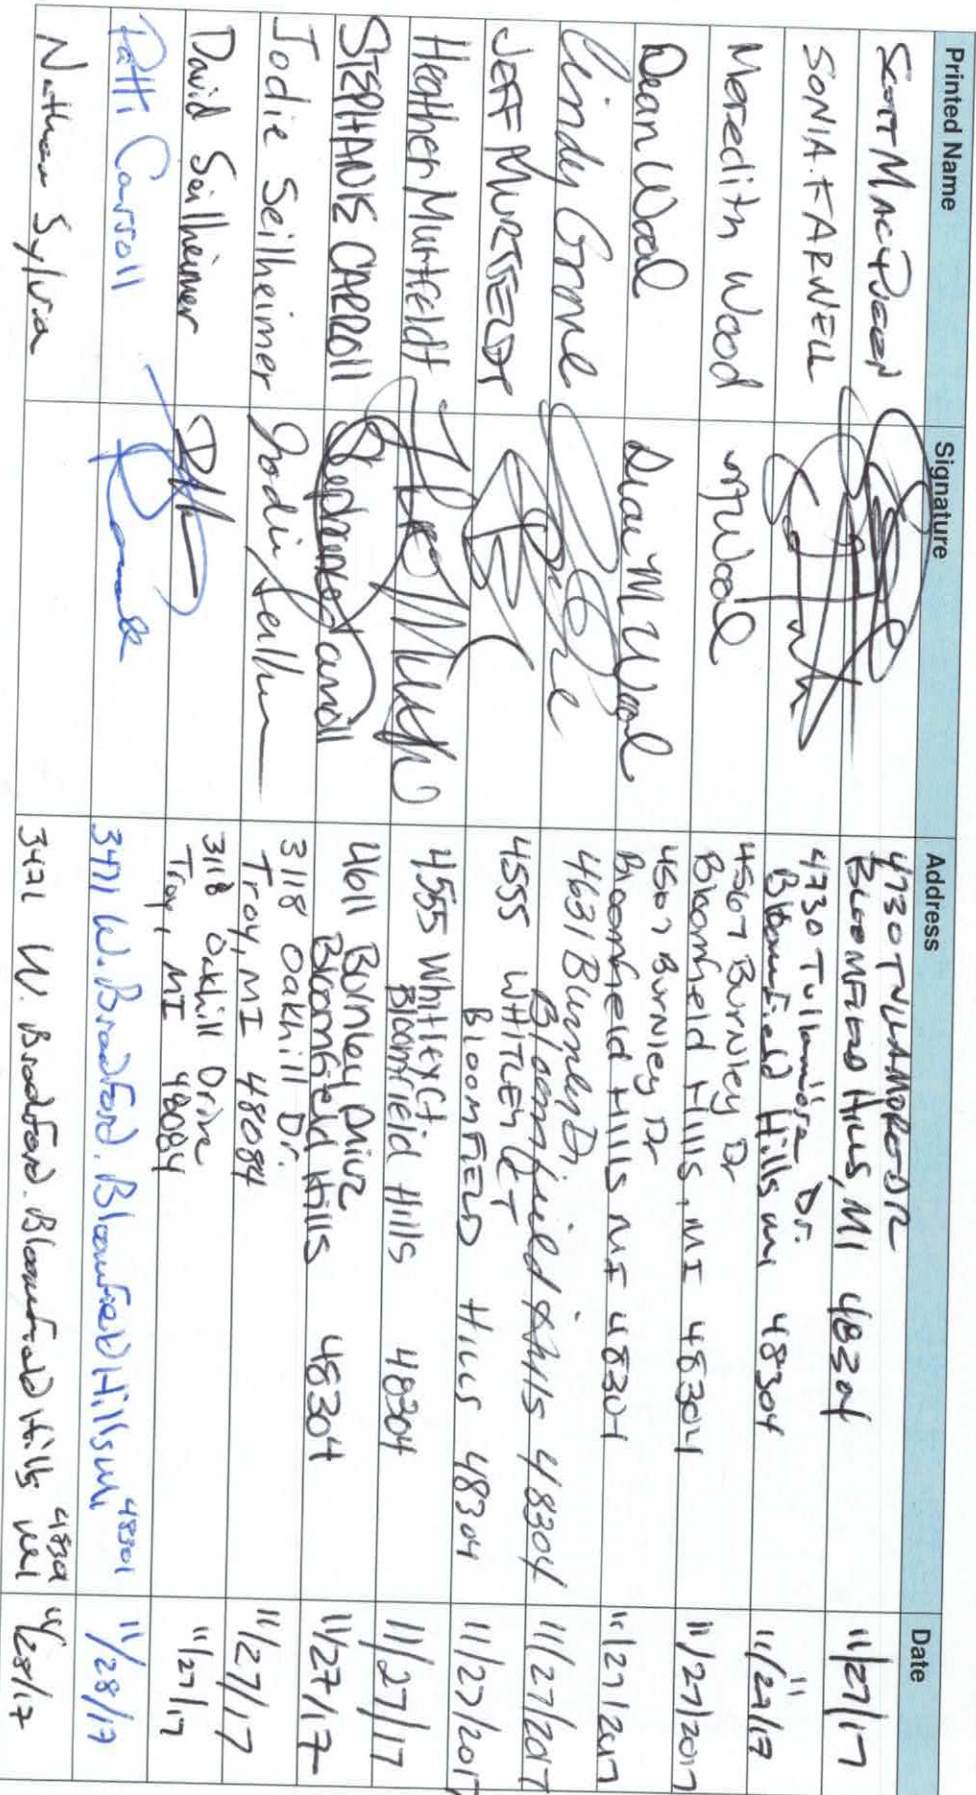 Printed Name Signature Address Date
SCOTT MACQUEEN 4730 TULLAMORE DR
BLOOMFIELD HILLS, MI 48304 11/27/17
SONIA FARWELL 4730 Tullamore Dr.
Bloomfield Hills mi 48304 11/27/17
Meredith Wood MWood 4567 Burnley Dr
Bloomfield Hills, MI 48304 11/27/2017
Dean Wood Dean M Wood 4567 Burnley Dr
Bloomfield Hills MI 48304 11/27/2017
Cindy 4631 Burnley Dr.
Bloomfield Hills 48304 11/27/2017
JEFF MURTFELDT 4555 WHITLEY CT
BLOOMFIELD HILLS 48304 11/27/2017
Heather Murtfeldt 4555 Whitley Ct
Bloomfield Hills 48304 11/27/17
STEPHANIE CARROLL Stephanie Carroll 4611 Burnley Drive
Bloomfield Hills 48304 11/27/17
Jodie Seilheimer Jodie 3118 Oakhill Dr.
Troy, MI 48084 11/27/17
David Seilheimer 3118 Oakhill Drive
Troy, MI 48084 11/27/17
Patti Carroll 3471 W. Bradford. Bloomfield Hills mi 48301 11/28/17
Nathan Sylvia 3471 W. Bradford. Bloomfield Hills mi 48301 11/28/17